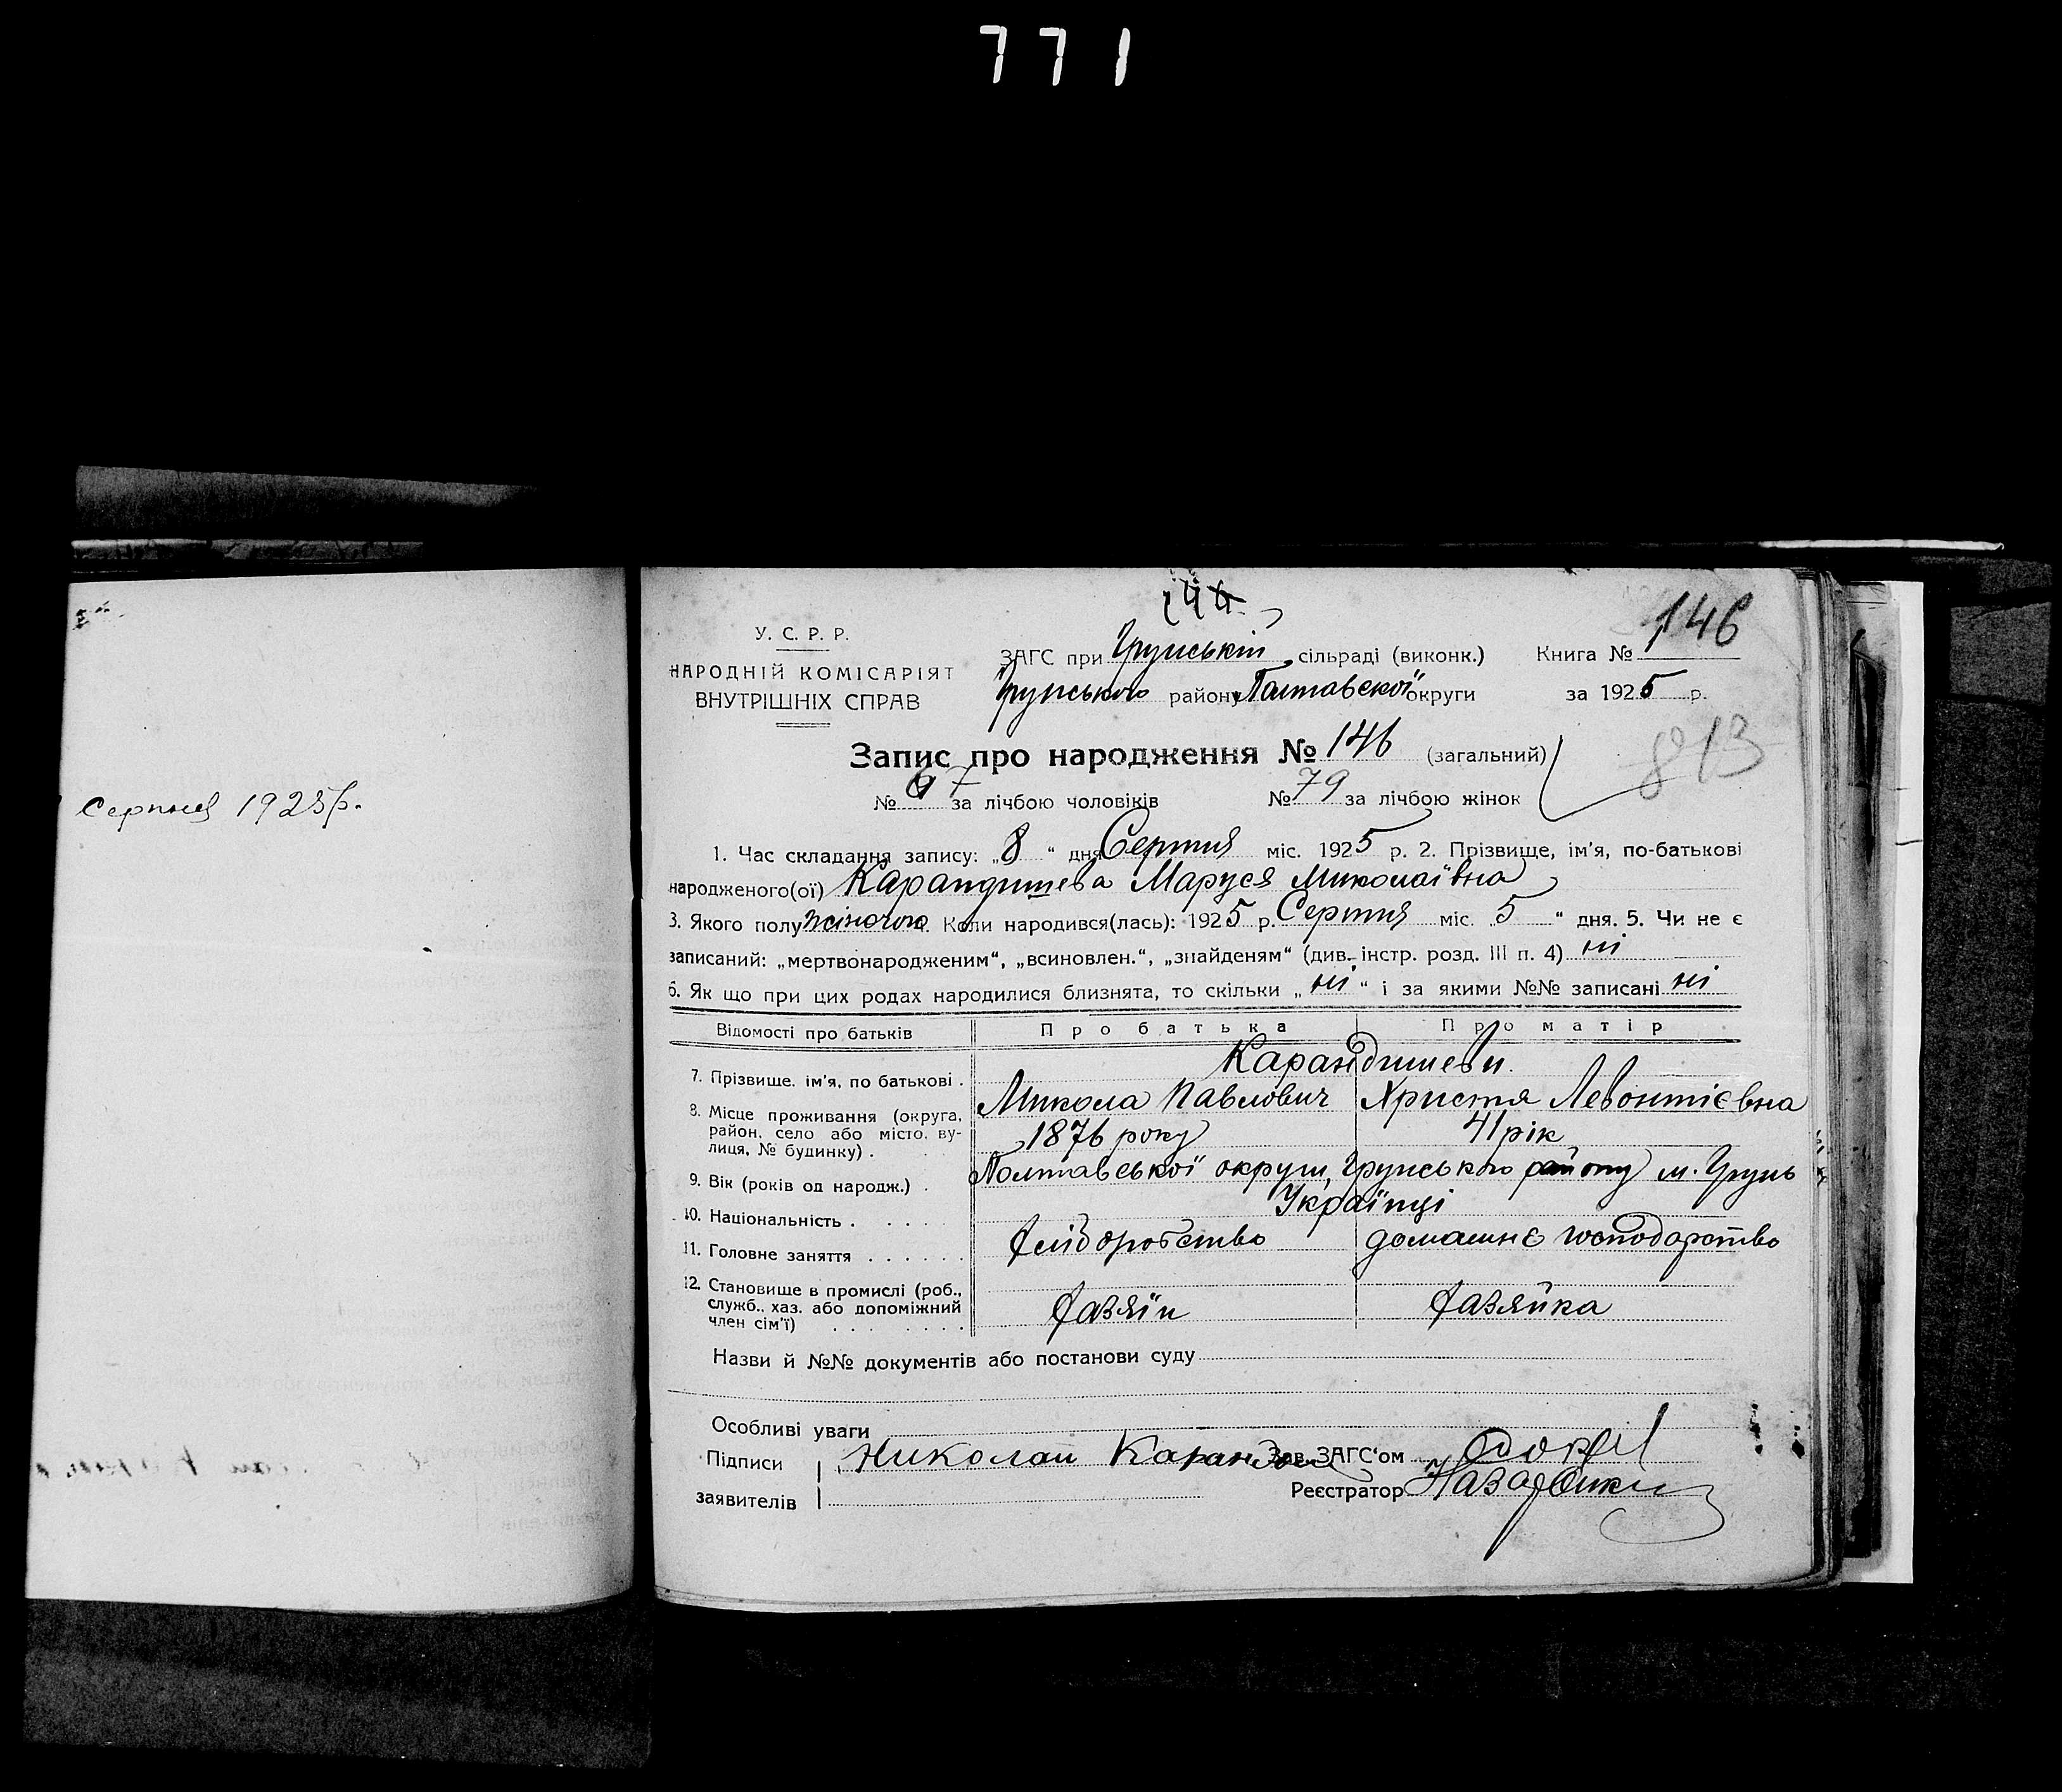 771
Серпня 1925 р.
144
146
У. С. Р. Р.
НАРОДНІЙ КОМІСАРІЯТ
ВНУТРІШНІХ СПРАВ
ЗАГС при Грунській сільраді (виконк.) Книга №
Грунського району Полтавскої округи за 1925 р.
813
Запис про народження № 146 (загальний)
№ 67 за лічбою чоловіків № 79 за лічбою жінок
1. Час складання запису: „8“ дня Серпня міс. 1925 р. 2. Прізвище, ім'я, по-батькові
народженого(ої) Карандишева Маруся Миколаївна
3. Якого полу жіночого. Коли народився(лась): 1925 р. Серпня міс. „5“ дня. 5. Чи не є
записаний: „мертвонародженим“, „всиновлен.“, „знайденям“ (див. інстр. розд. III п. 4) ні
6. Як що при цих родах народилися близнята, то скільки „ні“ і за якими №№ записані ні
Відомості про батьків Про батька Про матір
Карандишеви.
7. Прізвище, ім'я, по батькові . Микола Павлович Христя Левонтієвна
8. Місце проживання (округа, район, село або місто, вулиця, № будинку) . 1876 року 41 рік
9. Вік (років од народж.) . Полтавської округи, Грунського району м. Грунь
10. Національність . . . . . Українці
11. Головне заняття . . . . . . хліборобство домашнє господарство
12. Становище в промислі (роб., служб., хаз. або допоміжний член сім'ї) . . . . . . . хазяїн хазяйка
Назви й №№ документів або постанови суду
Особливі уваги
Підписи Николай Зав. ЗАГС'ом
заявителів Реєстратор